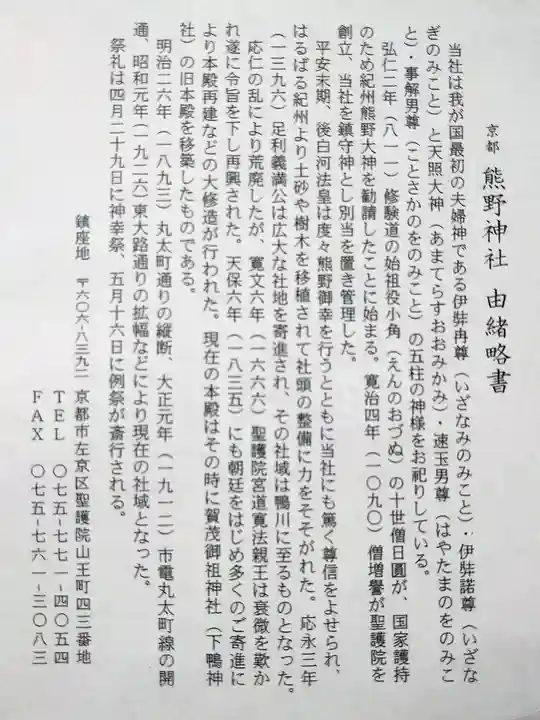 京都 熊野神社 由緒略書
当社は我が国最初の夫婦神である伊弉冉尊（いざなみのみこと）・伊弉諾尊（いざな
ぎのみこと）と天照大神（あまてらすおおみかみ）・速玉男尊（はやたまのをのみこ
と）・事解男尊（ことさかのをのみこと）の五柱の神様をお祀りしている。
弘仁二年（八一一）修験道の始祖役小角（えんのおづぬ）の十世僧日圓が、国家護持
のため紀州熊野大神を勧請したことに始まる。寛治四年（一〇九〇）僧増譽が聖護院を
創立、当社を鎮守神とし別当を置き管理した。
平安末期、後白河法皇は度々熊野御幸を行うとともに当社にも篤く尊信をよせられ、
はるばる紀州より土砂や樹木を移植されて社頭の整備に力をそそがれた。応永三年
（一三九六）足利義満公は広大な社地を寄進され、その社域は鴨川に至るものとなった。
応仁の乱により荒廃したが、寛文六年（一六六六）聖護院宮道寛法親王は衰微を歎か
れ遂に令旨を下し再興された。天保六年（一八三五）にも朝廷をはじめ多くのご寄進に
より本殿再建などの大修造が行われた。現在の本殿はその時に賀茂御祖神社（下鴨神
社）の旧本殿を移築したものである。
明治二六年（一八九三）丸太町通りの縦断、大正元年（一九一二）市電丸太町線の開
通、昭和元年（一九二六）東大路通りの拡幅などにより現在の社域となった。
祭礼は四月二十九日に神幸祭、五月十六日に例祭が斎行される。
鎮座地 〒六〇六-八三九二 京都市左京区聖護院山王町四三番地
ＴＥＬ 〇七五-七七一-四〇五四
ＦＡＸ 〇七五-七六一-三〇八三